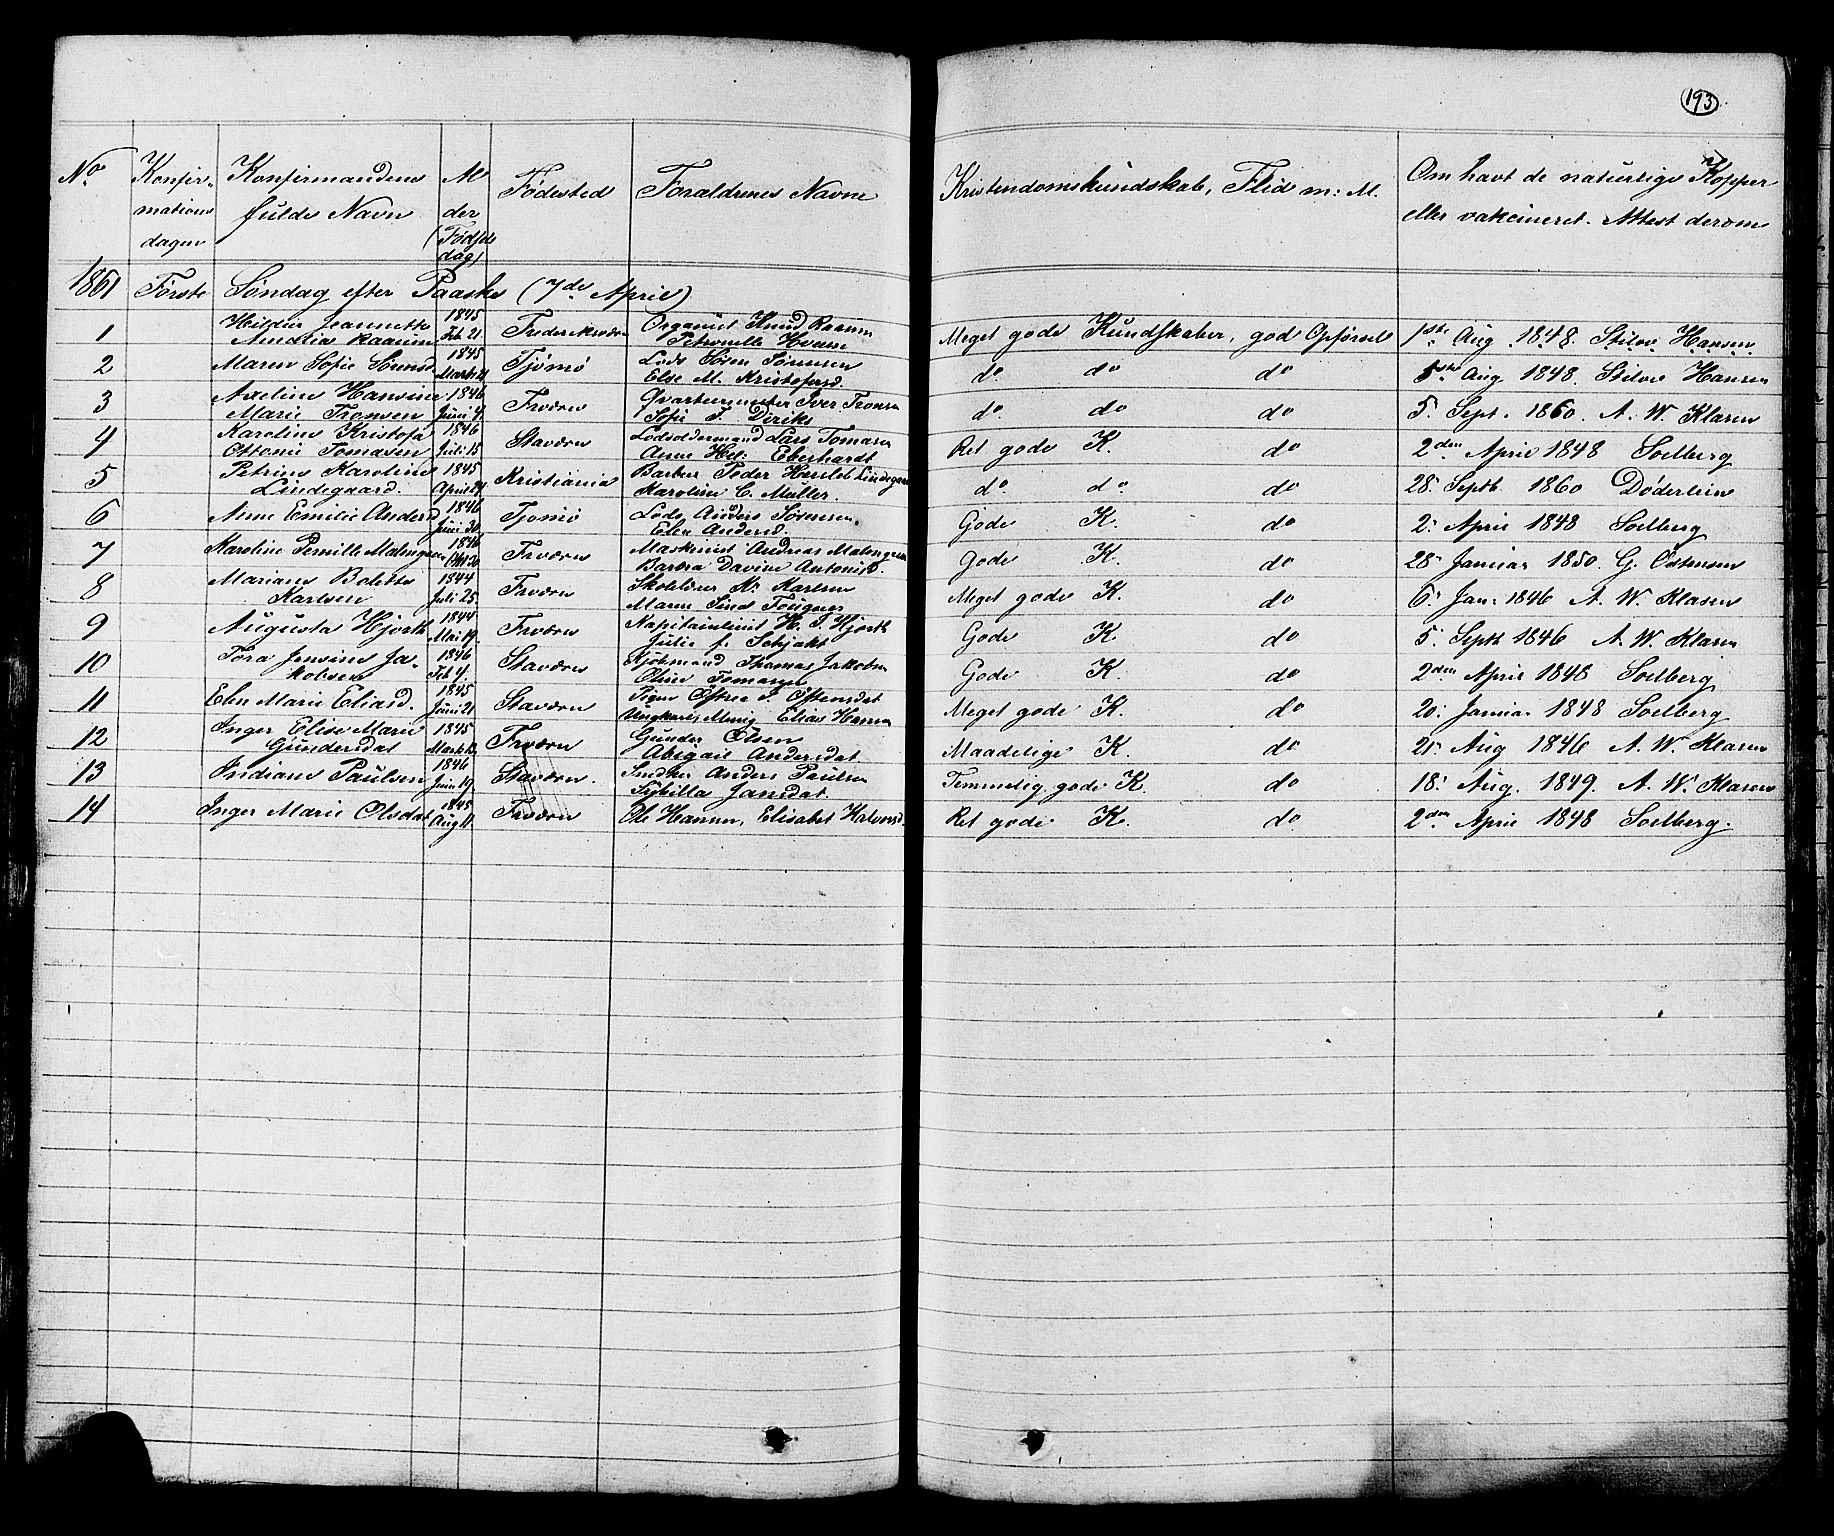 193
No Konfirmationsdagen Konfirmandens fulde Navn Alder (Fødselsdag) Fødested Forældrenes Navn Kristendomskundskab, Flid m: M. Om havt de naturlige Kopper eller vakcineret. Attest derom
1861 Første Søndag efter Paaske (7de April)
1 Hilda Jeannette Amalia Raanum 1845 Feb. 21 Frederiksværn Organist Knud Petronelle Meget gode Kundskaber, god Opførsel 1ste Aug 1848. Hansen
2 Maren Sofie Sørensd. 1845 Marts Tjömö Lods Sören Sörensen Else M. Kristofersd. do do do 5te Aug 1848. Hansen
3 Axeline Hansine Marie Tronsen 1846 Juni 4. Frværn Qvarteermester Iver Tronsen Sofie Diriks do do do 5. Sept. 1860. A. W. Klasen
4 Karoline Kristofa Ottomine Tomasen 1846 Juli 15 Staværn Lodsoldermand Lars Tomasen Anne Hel: Eberhardt Ret gode K. do 2den April 1848 Soelberg
5 Petrine Karoline Lindegaard. 1845 April 24 Kristiania Barber Peder Hersleb Lindegaard Karoline C. Müller. do do do 28. Septb. 1860 Döderlein
6 Anne Emilie Andersd 1846 Juni 30 Tjömö Lods Anders Sörensen. Elen Andersd. Gode K. do 2. April 1848 Soelberg
7 Karoline Pernille Malmgreen 1846 Okt 30 Frværn Maskinist Andreas Malmgreen Barbra Davine Antonisd. gode K. do 28. Januar 1850. G. Östensen
8 Mariane Bolette Karlsen 1844 Juli 25 Frværn Skolelærer K. Karlsen Maren Fougner Meget gode K. do 6. Jan. 1846 A. W. Klasen
9 Augusta Hjorth 1844 Mai 19. Frværn Kapitainleut H. J. Hjorth Julie f. Schjøtt Gode K. do 5. Septb 1846 A. W. Klasen
10 Tora Jensine Jakobsen 1846 Feb 4. Staværn Kjöbmand Thomas Jakobsen Oline Tomasen Gode K. do 2den April 1848 Soelberg
11 Elen Marie Eliasd. 1845 Juni 21 Staværn Pigen Östensdat Ungkarl, Elias Hansen Meget gode K. do 20. Januar 1848 Soelberg
12 Inger Elise Marie Gundersdat 1845 Marts Frværn Gunder Olsen Abigail Andersdat Maadelige K. do 21. Aug 1846 A. W. Klasen
13 Indiane Paulsen 1846 Juni 19 Staværn. Snedker Anders Paulsen Sybilla Jansdat. Temmelig gode K. do 18. Aug. 1849. A. W. Klasen
14 Inger Marie Olsdat 1845 Aug 11 Frværn Ole Hansen, Elisabet Halvorsd. Ret gode K. do. 2den April 1848 Soelberg.